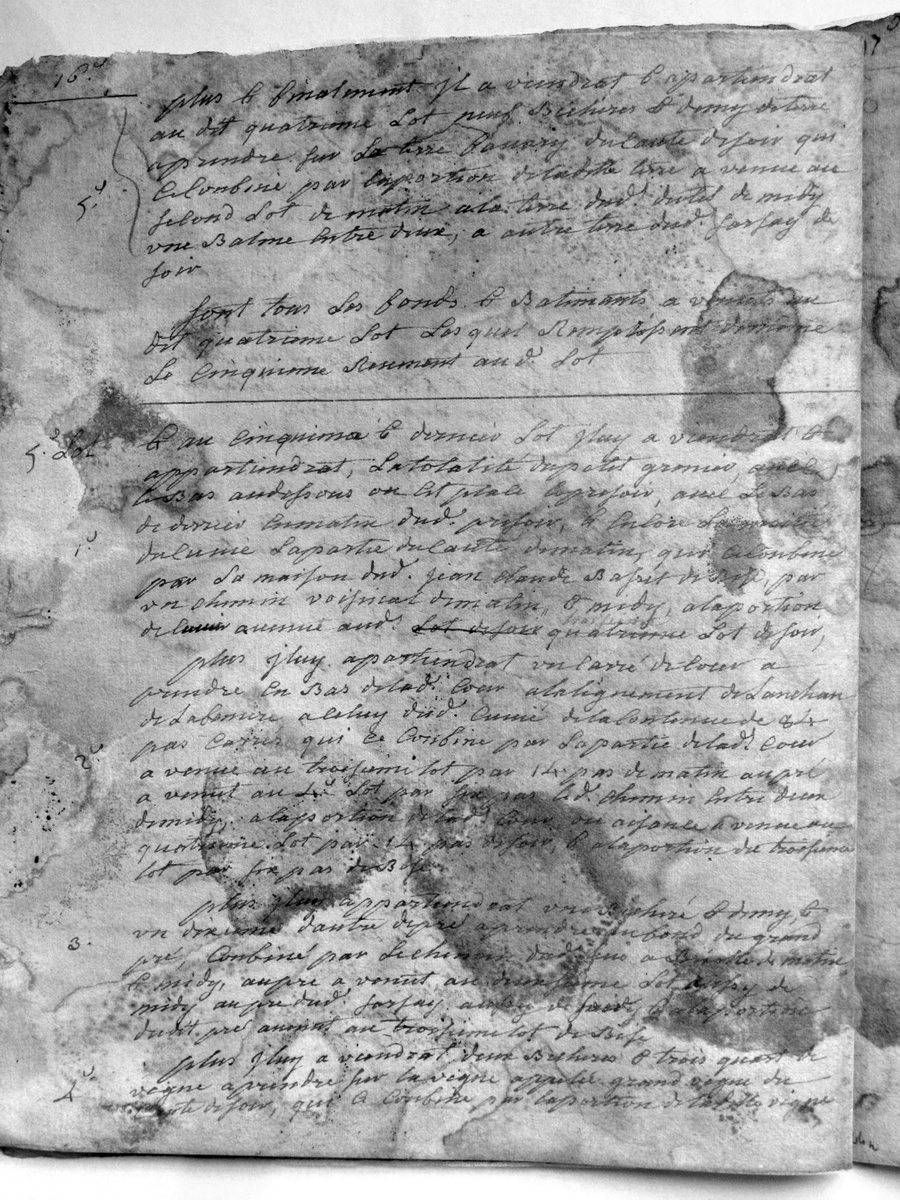 16.e
plus & finalement il a viendrat & apartiendrat
au dit quatrieme Lot neuf Bicheres & demy de terre
aprendre sur La terre du cauté de soir qui
Ce Conbine par laportion de ladite terre a venue au
second Lot de matin a la terre dud. de midy
vne Balme Entre deux, a autre terre dud. farfay de
soir
5.e
sont tous Les fonds & Batimants a venus au
dit quatrieme Lot Les quel Remplissent
Le Cinquieme Reument aud. Lot
5.e Lot
& au Cinquime & dernier Lot jluy a viendrat &
appartiendrat, La totalité du petit grenier, avec
Le Bas audessous ou Est placé Le presoir, avec Le Bas
de dernier Enmatin dud. presoir, & Encore La moitié
1.e
du Cuvié La partie du Cauté de matin, qui Ce Conbine
par La maison dud. jean Claude de Bise, par
vn chemin voisinal de matin, & midy, a laportion
de Cuvier avenue aud. Lot de soir quatrieme Lot de soir,
plus jluy apartiendrat vn Carré de Cour a
prendre En Bas de lad. Cour a lalignement de
a Celuy dud. Cuvié de la Contenue de 84
pas Carrés qui Ce Conbine par La partie de lad. Cour
2.e
a venue au troisieme lot par 14 pas de matin au pré
a venut au 4.e Lot par six pas Led. chemin Entre deux
de midy, a laportion de lad. Cour ou aisance a venue au
quatrieme Lot par 14 pas de soir, & a laportion du troisieme
lot par six pas de Bise
plus jluy appartiendrat vne Bicheré & demy &
vn dixieme d'autre de pré aprendre au fond du grand
3.
pré, Conbiné par Le chemin de matin
& midy, au pré a venut au Lot de
midy au pré dud. farfay aussy de & a laportion
dudit pré avenut au troisieme lot de Bise
plus jluy a viendrat deux Bicheres & trois quart de
4.e
vigne a prendre sur la vigne appelée grand vigne du
Cauté de soir, qui Ce Conbine par laportion de ladite vigne